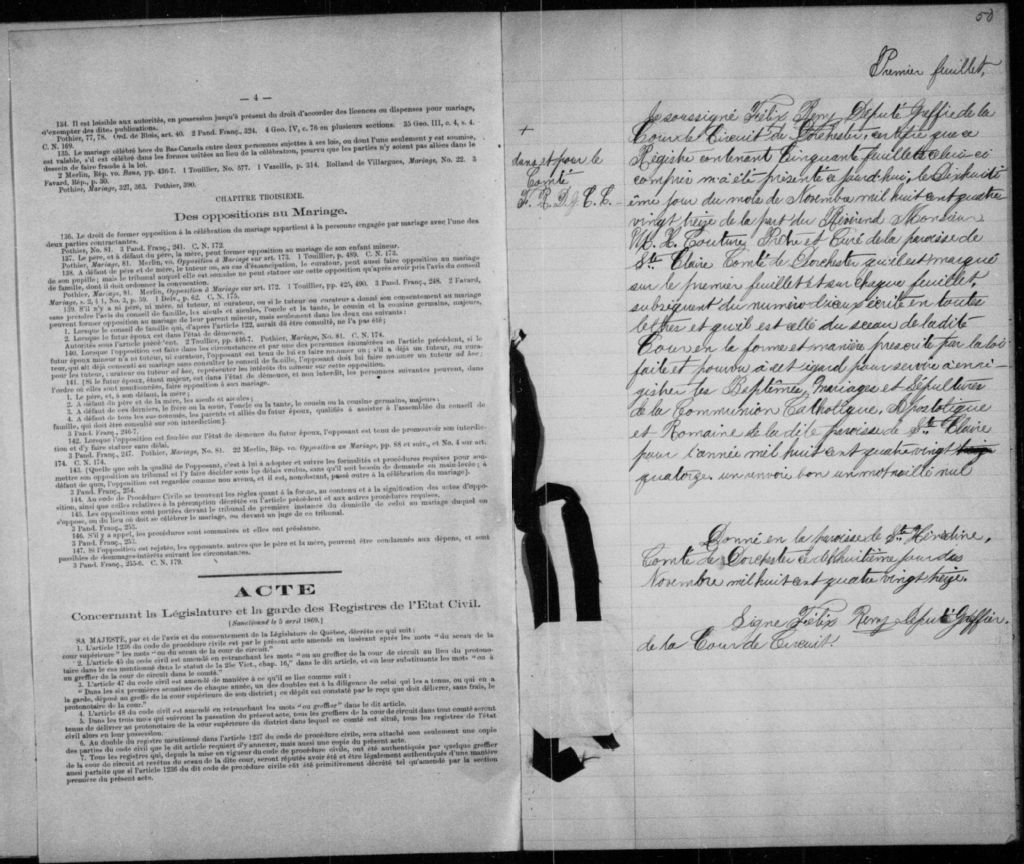 — 4 —
134. Il est loisible aux autorités, en possession jusqu'à présent du droit d'accorder des licences ou dispenses pour mariage,
d'exempter des dites publications.
Pothier, 77, 78. Ord. de Blois, art. 40. 2 Pand. Franç., 324. 4 Geo. IV, c. 76 en plusieurs sections. 35 Geo. III, c. 4, s. 4.
C. N. 169.
135. Le mariage célébré hors du Bas-Canada entre deux personnes sujettes à ses lois, ou dont l'une seulement y est soumise,
est valable, s'il est célébré dans les formes usitées au lieu de la célébration, pourvu que les parties n'y soient pas allées dans le
dessein de faire fraude à la loi.
2 Merlin, Rép. vo. Bans, pp. 436-7. 1 Touiller, No. 577. 1 Vazeille, p. 314. Rolland de Villargues, Mariage, No. 22. 3
Favard, Rép., p. 30.
Pothier, Mariage, 327, 363. Pothier, 390.
CHAPITRE TROISIÈME.
Des oppositions au Mariage.
136. Le droit de former opposition à la célébration du mariage appartient à la personne engagée par mariage avec l'une des
deux parties contractantes.
Pothier, No. 81. 3 Pand. Franç., 241. C. N. 172.
137. Le père, et à défaut du père, la mère, peut former opposition au mariage de son enfant mineur.
Pothier, Mariage, 81. Merlin, vo. Opposition à Mariage sur art. 173. 1 Touillier, p. 489. C. N. 173.
138. A défaut de père et de mère, le tuteur ou, au cas d'émancipation, le curateur, peut aussi faire opposition au mariage
de son pupille; mais le tribunal auquel elle est soumise ne peut statuer sur cette opposition qu'après avoir pris l'avis du conseil
de famille, dont il doit ordonner la convocation.
Pothier, Mariage, 81. Merlin, Opposition à Mariage sur art. 172. 1 Touillier, pp. 425, 490. 3 Pand. Franç., 248. 2 Favard,
Mariage, s. 2, § 1, No. 3, p. 59. 1 Delv., p. 62. C. N. 175.
139. S'il n'y a ni père, ni mère, ni tuteur, ni curateur, ou si le tuteur ou curateur a donné son consentement au mariage
sans prendre l'avis du conseil de famille, les aïeuls et aïeules, l'oncle et la tante, le cousin et la cousine germains, majeurs,
peuvent former opposition au mariage de leur parent mineur, mais seulement dans les deux cas suivants:
1. Lorsque le conseil de famille qui, d'après l'article 122, aurait dû être consulté, ne l'a pas été;
2. Lorsque le futur époux est dans l'état de démence.
Autorités sous l'article précédent. 2 Touillier, pp. 416-7. Pothier, Mariage, No. 81. C. N. 174.
140. Lorsque l'opposition est faite dans les circonstances et par une des personnes énumérées en l'article précédent, si le
futur époux mineur n'a ni tuteur, ni curateur, l'opposant est tenu de lui en faire nommer un; s'il a déjà un tuteur, ou cura-
teur, qui ait déjà consenti au mariage sans consulter le conseil de famille, l'opposant doit lui faire nommer un tuteur ad hoc;
pour les tuteur, curateur ou tuteur ad hoc, représenter les intérêts du mineur sur cette opposition.
141. [Si le futur époux, étant majeur, est dans l'état de démence, et non interdit, les personnes suivantes peuvent, dans
l'ordre où elles sont mentionnées, faire opposition à son mariage.
1. Le père, et, à son défaut, la mère;
2. A défaut du père et de la mère, les aïeuls et aïeules;
3. A défaut de ces derniers, le frère ou la sœur, l'oncle ou la tante, le cousin ou la cousine germains, majeurs;
4. A défaut de tous les sus-nommés, les parents et alliés du futur époux, qualifiés à assister à l'assemblée du conseil de
famille, qui doit être consulté sur son interdiction].
3 Pand. Franç., 246-7.
142. Lorsque l'opposition est fondée sur l'état de démence du futur époux, l'opposant est tenu de promouvoir son interdic-
tion et d'y faire statuer sans délai.
3 Pand. Franç., 247. Pothier, Mariage, No. 81. 22 Merlin, Rép. vo. Opposition au Mariage, pp. 88 et suiv., et No. 4 sur art.
174. C. N. 174.
143. [Quelle que soit la qualité de l'opposant, c'est à lui à adopter et suivre les formalités et procédures requises pour sou-
mettre son opposition au tribunal et l'y faire décider sous les délais voulus, sans qu'il soit besoin de demande en main-levée; à
défaut de quoi, l'opposition est regardée comme non avenue, et il est, nonobstant, passé outre à la célébration du mariage].
3 Pand. Franç., 254.
144. Au code de Procédure Civile se trouvent les règles quant à la forme, au contenu et à la signification des actes d'oppo-
sition, ainsi que celles relatives à la péremption décrétée en l'article précédent et aux autres procédures requises.
145. Les oppositions sont portées devant le tribunal de première instance du domicile de celui au mariage duquel on
s'oppose, ou du lieu où doit se célébrer le mariage, ou devant un juge de ce tribunal.
3 Pand. Franç., 255.
146. S'il y a appel, les procédures sont sommaires et elles ont préséance.
3 Pand. Franç., 257.
147. Si l'opposition est rejetée, les opposants, autres que le père et la mère, peuvent être condamnés aux dépens, et sont
passibles de dommages-intérêts suivant les circonstances.
3 Pand. Franç., 255-6. C. N. 179.
ACTE
Concernant la Législature et la garde des Registres de l'Etat Civil.
[Sanctionné le 5 avril 1869.]
SA MAJESTÉ, par et de l'avis et du consentement de la Législature de Québec, décrète ce qui suit:
1. L'article 1236 du code de procédure civile est par le présent acte amendé en insérant après les mots "du sceau de la
cour supérieure" les mots "ou du sceau de la cour de circuit."
2. L'article 45 du code civil est amendé en retranchant les mots "ou au greffier de la cour de circuit au lieu du protono-
taire dans le cas mentionné dans le statut de la 25e Vict., chap. 16," dans le dit article, et en leur substituant les mots "ou à
un greffier de la cour de circuit dans le comté."
3. L'article 47 du code civil est amendé de manière à ce qu'il se lise comme suit:
"Dans les six premières semaines de chaque année, un des doubles est à la diligence de celui qui les a tenus, ou qui en a
la garde, déposé au greffe de la cour supérieure de son district; ce dépôt est constaté par le reçu que doit délivrer, sans frais, le
protonotaire de la cour."
4. L'article 48 du code civil est amendé en retranchant les mots "ou greffier" dans le dit article.
5. Dans les trois mois qui suivront la passation du présent acte, tous les greffiers de la cour de circuit dans tout comté seront
tenus de délivrer au protonotaire de la cour supérieure du district dans lequel ce comté est situé, tous les registres de l'état
civil alors en leur possession.
6. Au double du registre mentionné dans l'article 1237 du code de procédure civile, sera attaché non seulement une copie
des parties du code civil que le dit article requiert d'y annexer, mais aussi une copie du présent acte.
7. Tous les registres qui, depuis la mise en vigueur du code de procédure civile, ont été authentiqués par quelque greffier
de la cour de circuit et revêtus du sceau de la dite cour, seront réputés avoir été et être légalement authentiqués d'une manière
aussi parfaite que si l'article 1236 du dit code de procédure civile eût été primitivement décrété tel qu'amendé par la section
première du présent acte.
50
Premier feuillet.
+
dans et pour le
Comté
F. R. D. G. C. C.
Je soussigné Félix Remy Député Greffie de la
Cour de Circuit de Dorchester, certifie que ce
Registre contenant Cinquante feuillets celui-ci
compris m'a été présenté ce jourd'hui, le Dixhuiti-
ème jour du mois de Novembre mil huit cent quatre
vingt treize de la part du Révérend Monsieur
Couture Prêtre et Curé de la paroisse de
Ste Claire Comté de Dorchester qu'il est marqué
sur le premier feuillet et sur chaque feuillet
subséquent du numéro d'iceux écrit en toutes
lettres et qu'il est cellé du sceau de la dite
Cour en la forme et manière prescrite par la loi
faite et pourvu à cet égard pour servir à enré-
gistrer les Baptêmes, Mariages et Sépultures
de la Communion Catholique, Apostolique
et Romaine de la dite paroisse de Ste Claire
pour l'année mil huit cent quatre vingt treize
quatorze. un renvoi bon un mot raillé nul
Donné en la paroisse de Ste Hénédine,
Comté de Dorchester ce dixhuitième jour de
Novembre mil huit cent quatre vingt treize.
Signé Félix Remy Député Greffier.
de la Cour de Circuit.